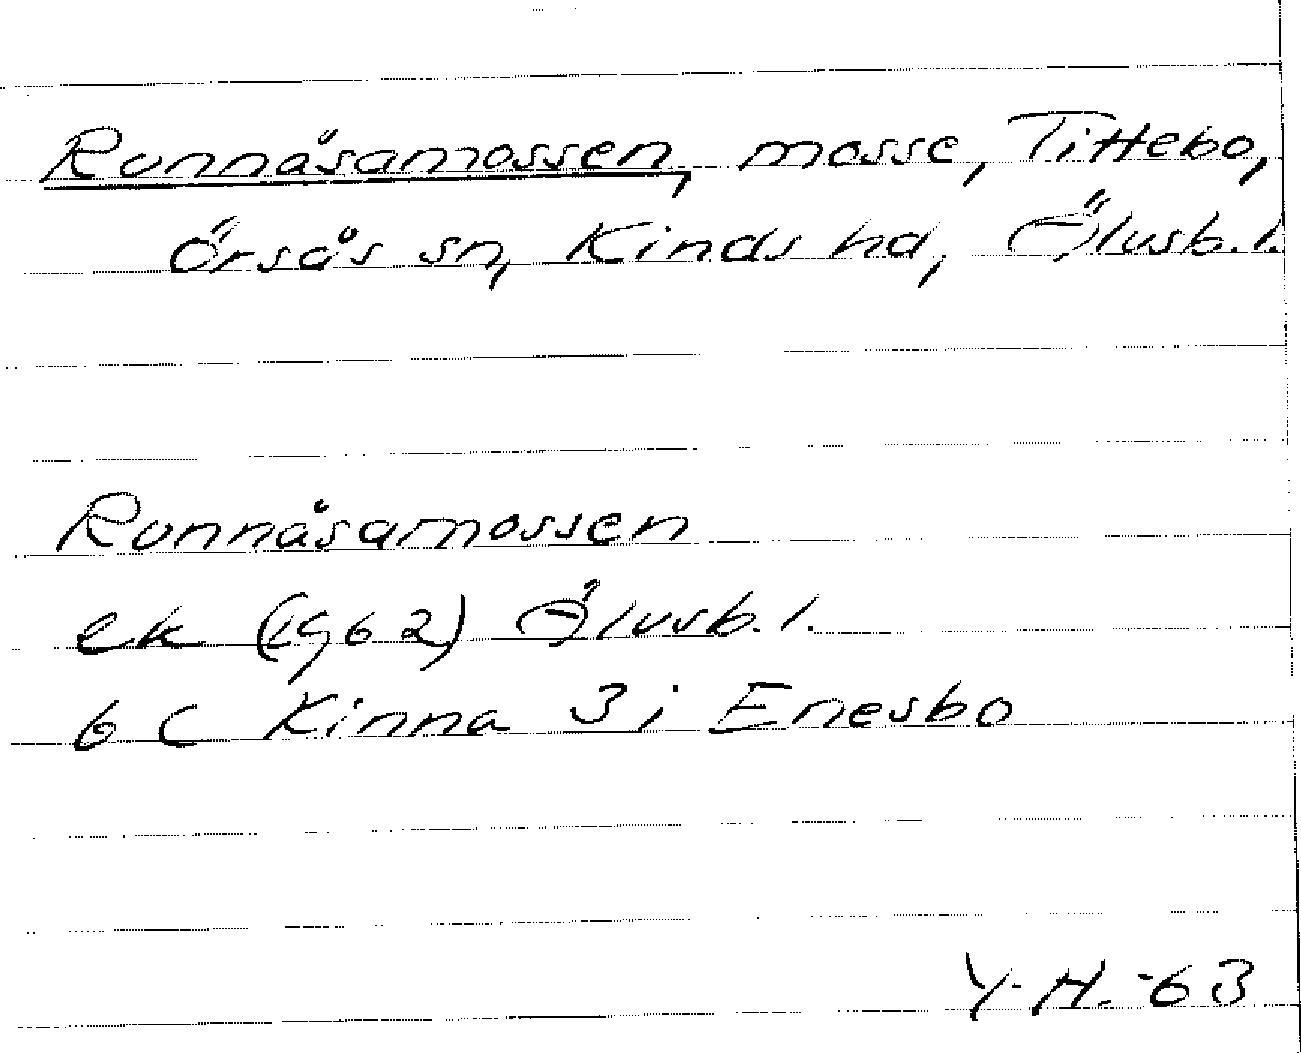 Runnåsamossen, mosse, Tittebo,
Örsås sn, Kinds hd, Älvsb. l.
Runnåsamossen
ek (1962) Älvsb. l.
6 C Kinna 3i Enesbo
Y. H. -63